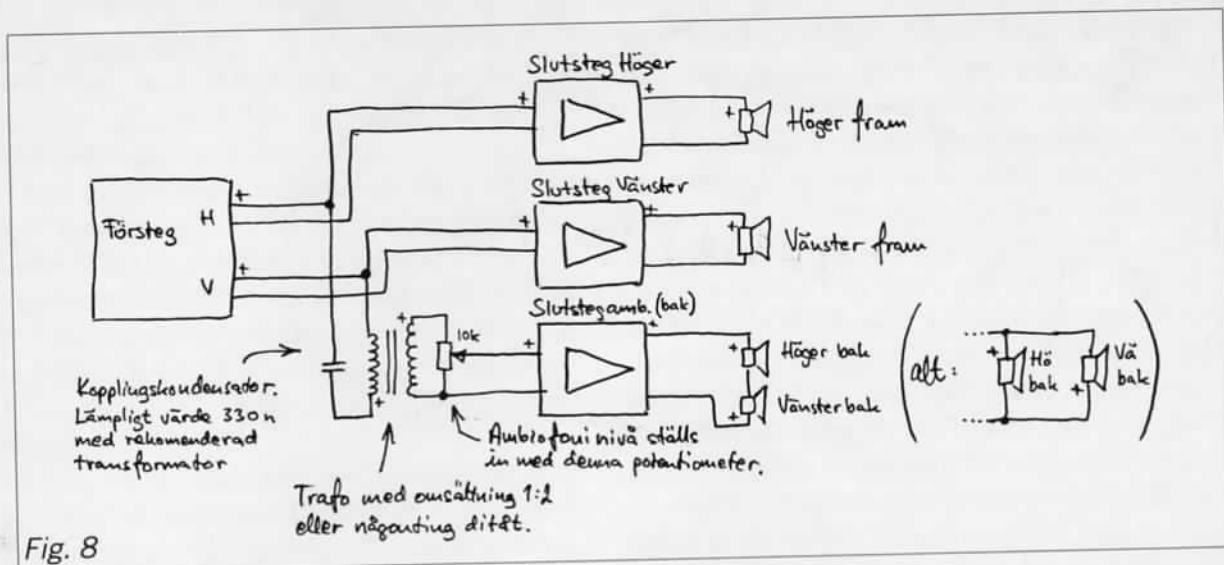 Slutsteg Höger
+
+
+
Höger fram
Försteg
+
H
+
V
Slutsteg Vänster
+
+
+
Vänster fram
Slutsteg amb. (bak)
+
10k
+
+
+
+
Höger bak
+
Vänster bak
alt:
+
Hö
bak
+
Vä
bak
Kopplingskondensator.
Lämpligt värde 330n
med rekomenderad
transformator
Ambiofoni nivå ställs
in med denna potentiometer.
Trafo med omsättning 1:2
eller någonting ditåt.
Fig. 8